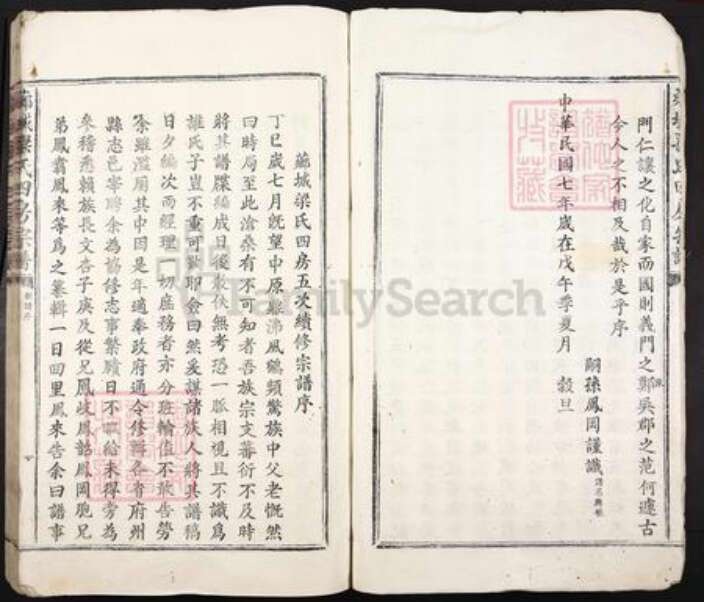 門仁讓之化自家而國則義門之鄭吳郡之范何遽古
今人之不相及哉於是乎序
中華民國七年歲在戊午季夏月　穀旦
嗣孫鳳岡謹識
蕪城梁氏四房五次續修宗譜序
丁巳歲七月旣望中原鼎沸風鶴頻驚族中父老慨然
曰時局至此滄桑有不可知者吾族宗支蕃衍不及時
將其譜牒編成日後散佚無考憑一脈相視且不識爲
誰氏子豈不重可歎耶僉曰然爰謀諸族人將其譜稿
日夕編次而經理一切庶務者亦分班輪值不敢告勞
余雖濫厠其中因是年適奉政府通令修輯各省府州
縣志邑宰聘余為協修志事繁賾日不暇給未得旁為
參稽悉賴族長文杏子庚及從兄鳳岐鳳韶鳳岡胞兄
弟鳳翥鳳來等爲之纂輯一日回里鳳來告余曰譜事
梁氏四房宗譜
FamilySearch